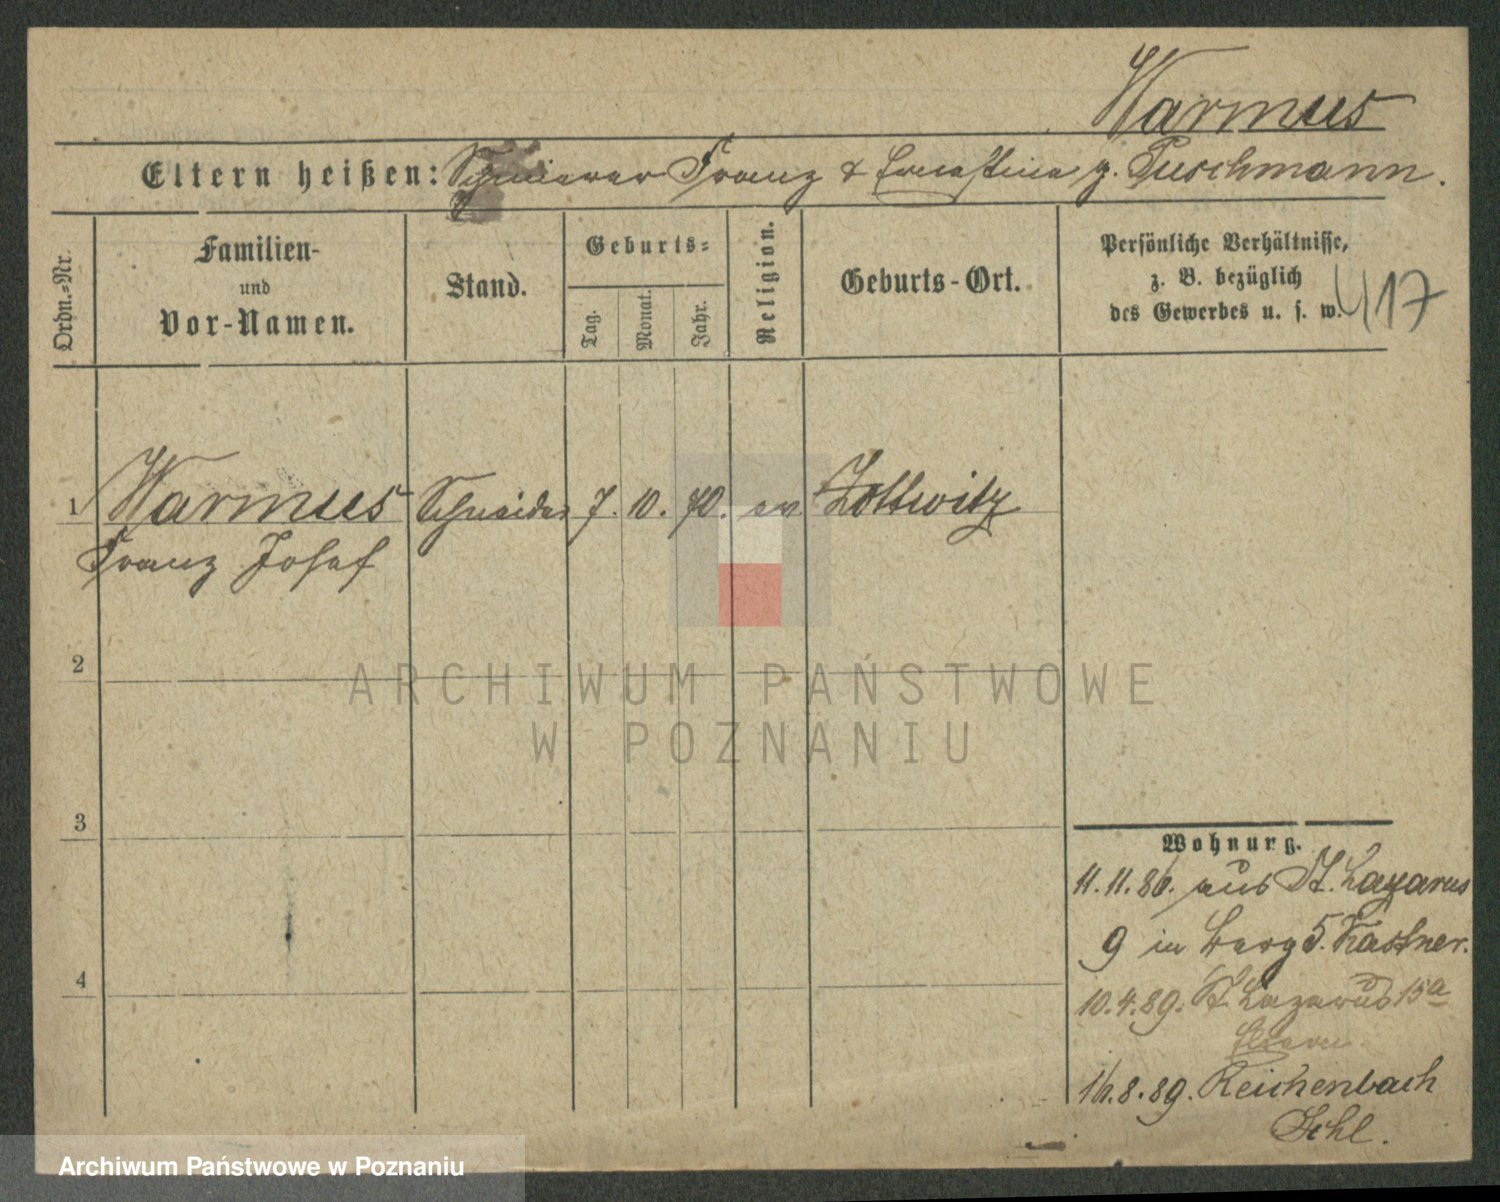 Warmus
Eltern heißen: Schmierer Franz & Ernestine g. Puschmann.
Ordn.=Nr.
Familien-
und
Vor-Namen.
Stand.
Geburts=
Tag.
Monat.
Jahr.
Religion.
Geburts-Ort.
Persönliche Verhältnisse,
z. B. bezüglich
des Gewerbes u. s. w.
417
1 Warmus Schneider 7. 10. 70. ev Zottwitz
Franz Josef
2
3
4
Wohnung.
11.11.86. aus St. Lazarus
9 in Berg 5. Kastner.
10.4.89. St. Lazarus 15a
Eltern
16.8.89. Reichenbach
Schl.
ARCHIWUM PAŃSTWOWE
W POZNANIU
Archiwum Państwowe w Poznaniu